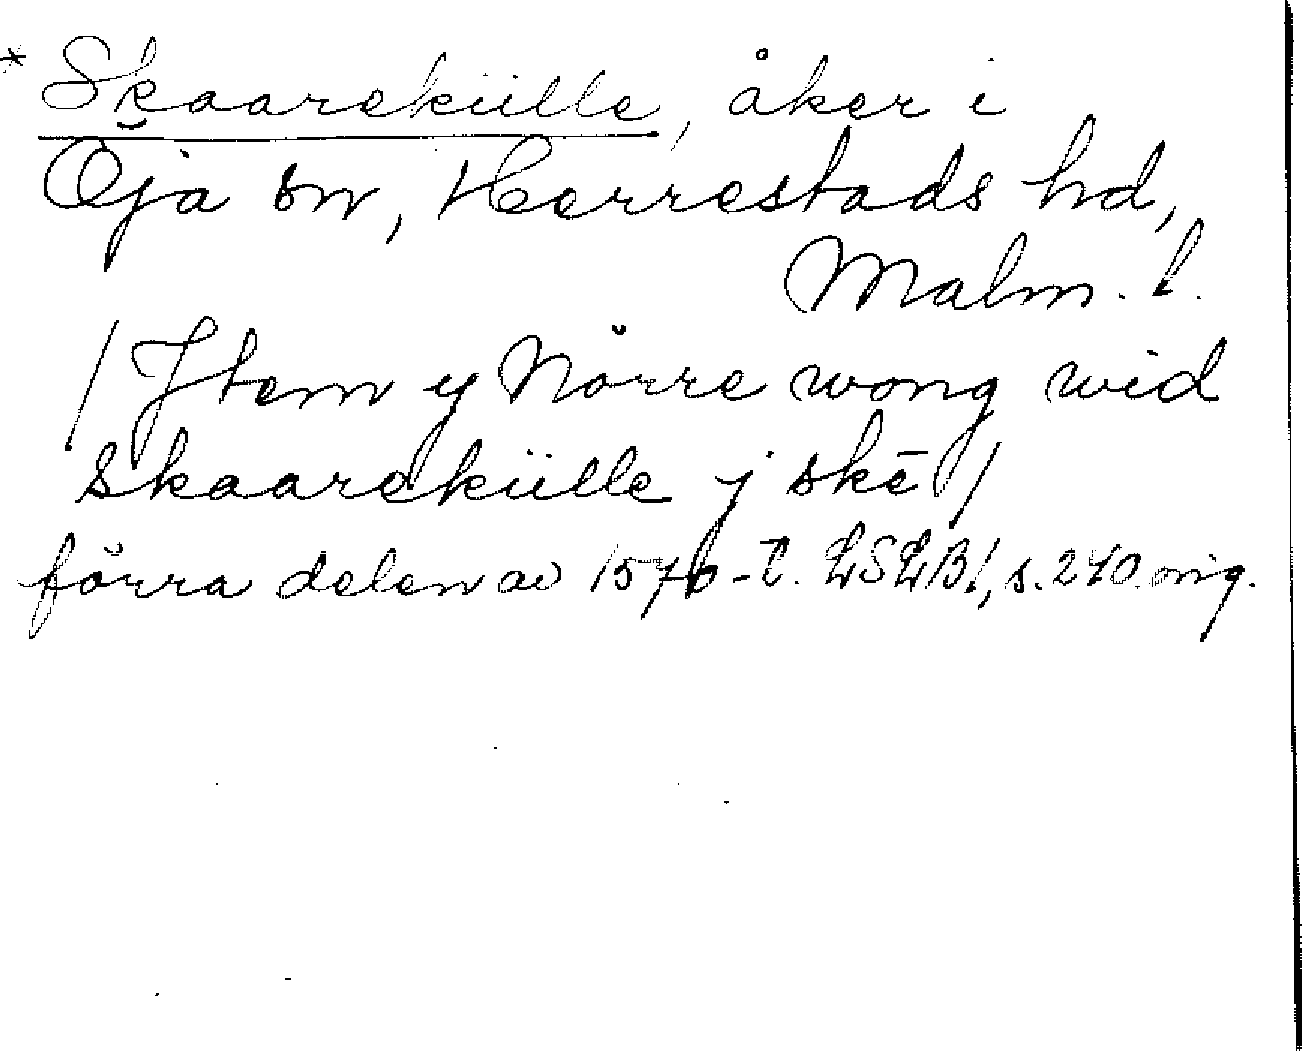 * Skaareküille, åker i
Öja sn, Herrestads hd,
Malm. l.
/ Jtem y Nŏrre wong wid
skaareküille j skē /
förra delen av 1570-t. LSLB1, s. 240 orig.